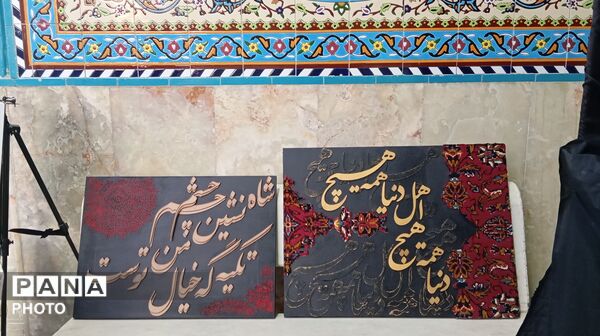 شاه نشین چشم من
تکیه گه خیال توست
دنیا همه هیچ
اهل دنیا همه هیچ
PANA
PHOTO